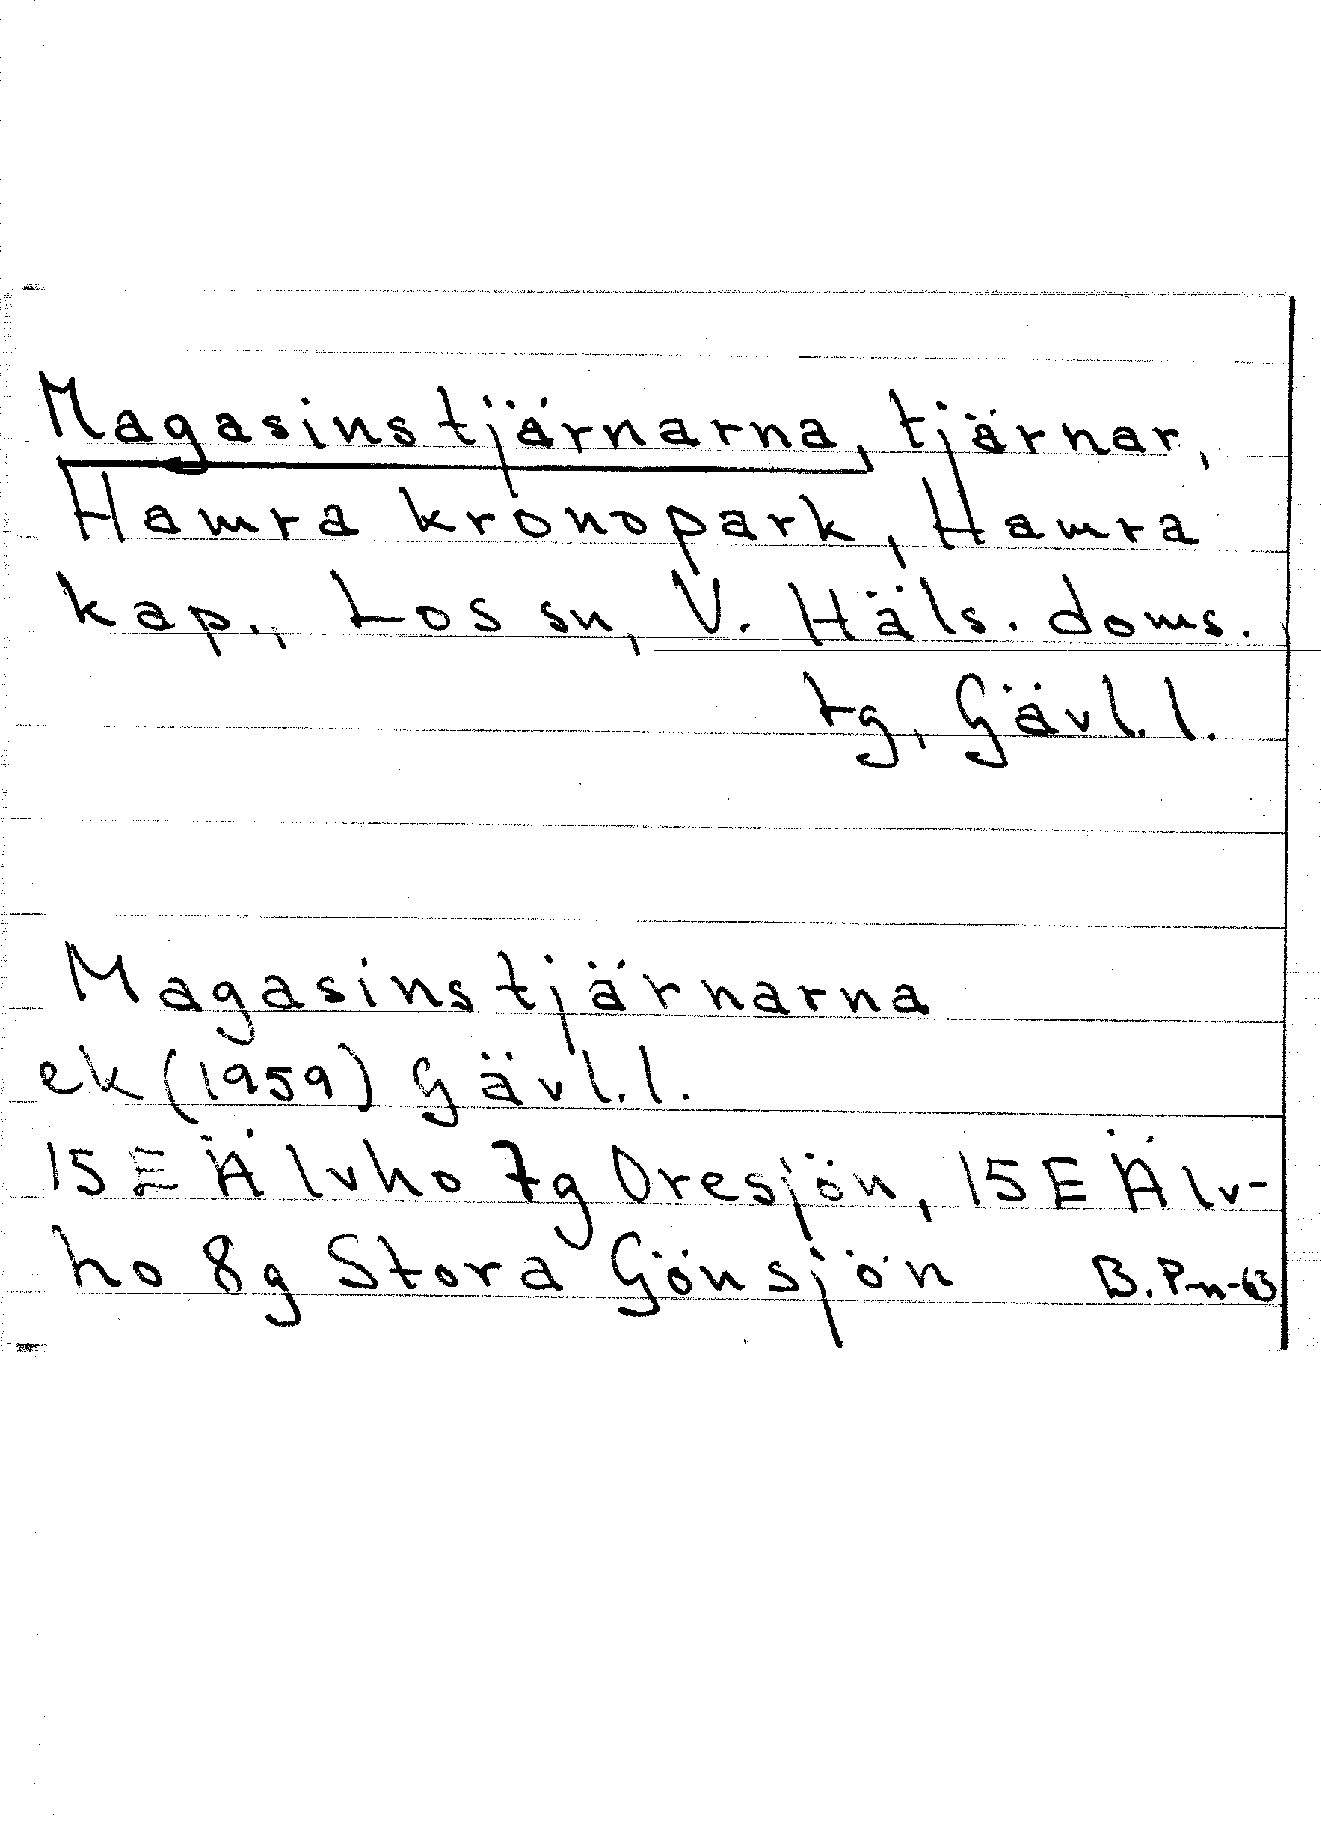 Magasinstjärnarna, tjärnar,
Hamra kronopark, Hamra
kap., Los sn, V. Häls. doms.
tg, Gävl. l.
Magasinstjärnarna
ek (1959) Gävl. l.
15 E Älvho 7g Oresjön, 15 E Älv-
ho 8g Stora Gönsjön B. P-n-63